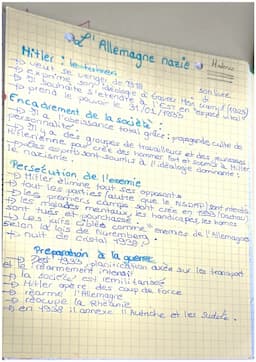 L'Allemagne nazie
Histoire
Hitler :
→ veut se venger de 1918
→ exprime son idéologie à travers Mein Kampf (1925)
son livre
→ souhaite s'étendre à l'Est en "espace vital"
→ prend le pouvoir le 31/01/1933
Encadrement de la société :
→ Il y a l'obéissance total grâce : propagande culte de
personnalité
→ Il y a des groupes de travailleurs et des jeunesses
Hitlérienne pour créé des hommes fort et soumis à Hitler
→ Les sportifs sont soumis à l'idéologie dominante :
le nazisme.
Persécution de l'ennemie
→ Hitler élimine tout ses opposants
→ tout les parties (autre que le NSDAP) sont interdis
→ les premiers camps sont crée en 1933 (Dachau)
→ les malades mentaux, les handicapés, les homos
sont tués et pourchassé.
→ Les juifs ciblés comme "ennemies de l'Allemagne"
selon la lois de Nuremberg.
→ nuit de cristal 1938 ?
Préparation à la guerre
→ Dès 1933, planification axée sur les transport
et le réarmement intensif
→ la société est remilitarisée
→ Hitler opère des coup de force
→ réarme l'Allemagne
→ réocupe la Rhénanie
→ en 1938 il annexe l'Autriche et les Sudète.